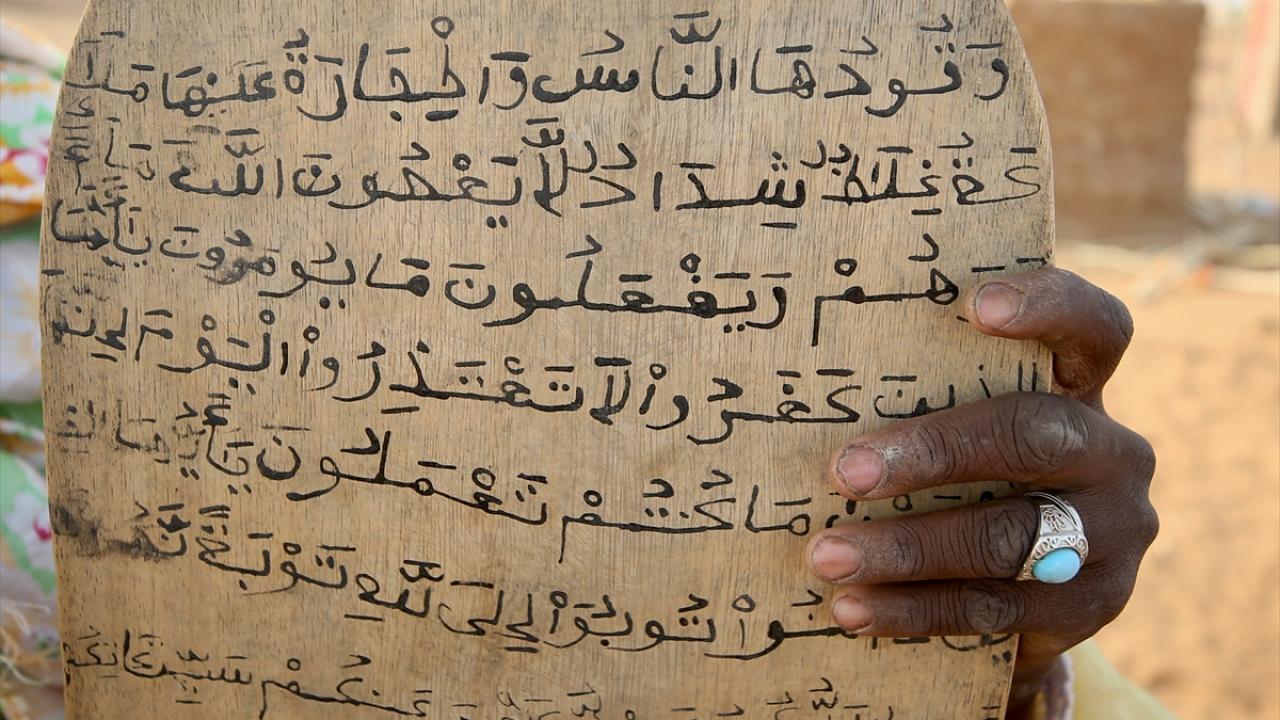 وَقُودُهَا النَّاسُ وَالْحِجَارَةُ عَلَيْهَا مَلَٰٓ
كَةٌ غِلَظٌ شِدَادٌ لَّا يَعْصُونَ اللَّهَ
هُمْ وَيَفْعَلُونَ مَا يُومَرُونَ يَٰأَيُّهَا
الذِينَ كَفَرُواْ لَا تَعْتَذِرُواْ الْيَوْمَ إِنَّمَا
مَا كُنتُمْ تَعْمَلُونَ يَٰأَيُّهَا الذ
ءَامَنُواْ تُوبُوٓاْ إِلَى اللَّهِ تَوْبَةً نَّ
عَنكُمْ سَيِّـَٔاتِكُمْ